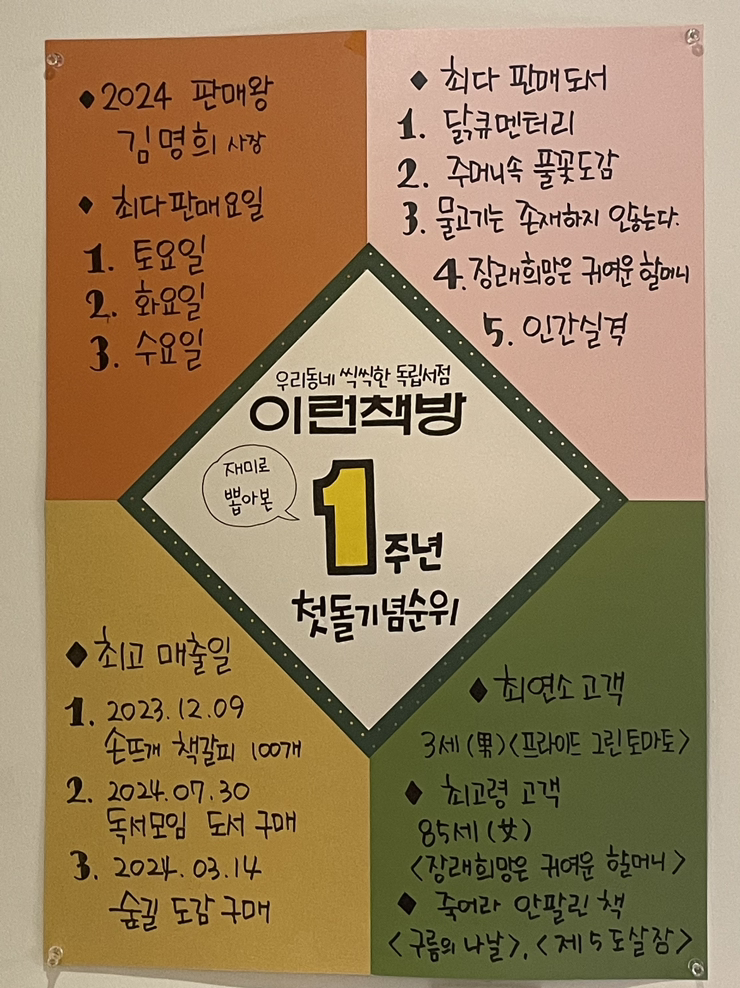 ◆2024 판매왕
김명희 사장
◆ 최다판매요일
1. 토요일
2. 화요일
3. 수요일
◆ 최다 판매도서
1. 닭큐멘터리
2. 주머니속 풀꽃도감
3. 물고기는 존재하지 않는다.
4. 장래희망은 귀여운 할머니
5. 인간실격
우리동네 씩씩한 독립서점
이런책방
재미로
뽑아본
1주년
첫돌기념순위
◆ 최고 매출일
1. 2023.12.09
손뜨개 책갈피 100개
2. 2024.07.30
독서모임 도서 구매
3. 2024.03.14
숲길 도감 구매
◆ 최연소 고객
3세(男)<프라이드 그린토마토>
◆ 최고령 고객
85세(女)
<장래희망은 귀여운 할머니>
◆ 죽어라 안팔린 책
<구름의 나날>, <제5도살장>